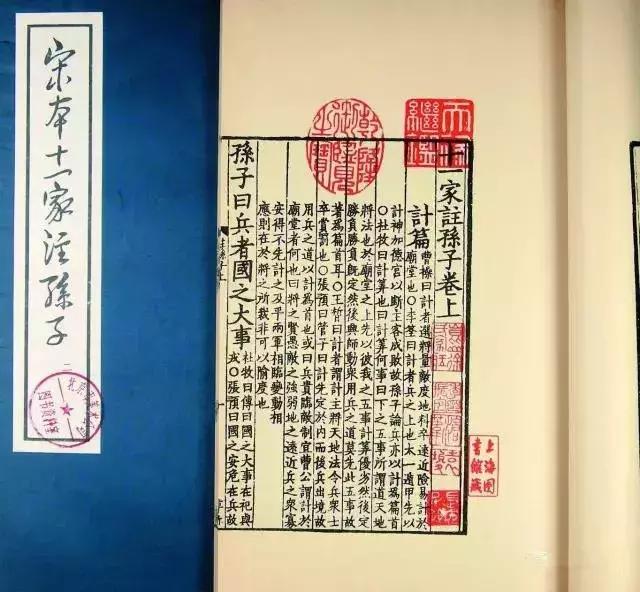 宋本十一家注孫子
二
图书资料室
乾隆御覽之寶
天祿繼鑑
十一家註孫子卷上
計篇
曹操曰計者選將量敵度地料卒遠近險易計於
廟堂也○李筌曰計者兵之上也太一遁甲先以
計神加德宮以斷主客成敗故孫子論兵亦以計爲篇首
○杜牧曰計算也曰計算何事曰下之五事所謂道天地
將法也於廟堂之上先以彼我之五事計算優劣然後定
勝負勝負既定然後興師動衆用兵之道莫先此五事故
著爲篇首耳○王晳曰計者謂計主將天地法令兵衆士
卒賞罰也○張預曰管子曰計先定於內而後兵出境故
用兵之道以計爲首也或曰兵貴臨敵制宜曹公謂計於
廟堂者何也曰將之賢愚敵之強弱地之遠近兵之衆寡
安得不先計之及乎兩軍相臨變動相
應則在於將之所裁非可以隃度也
孫子曰兵者國之大事
杜牧曰傳曰國之大事在祀與
戎○張預曰國之安危在兵故
上海圖
書館藏